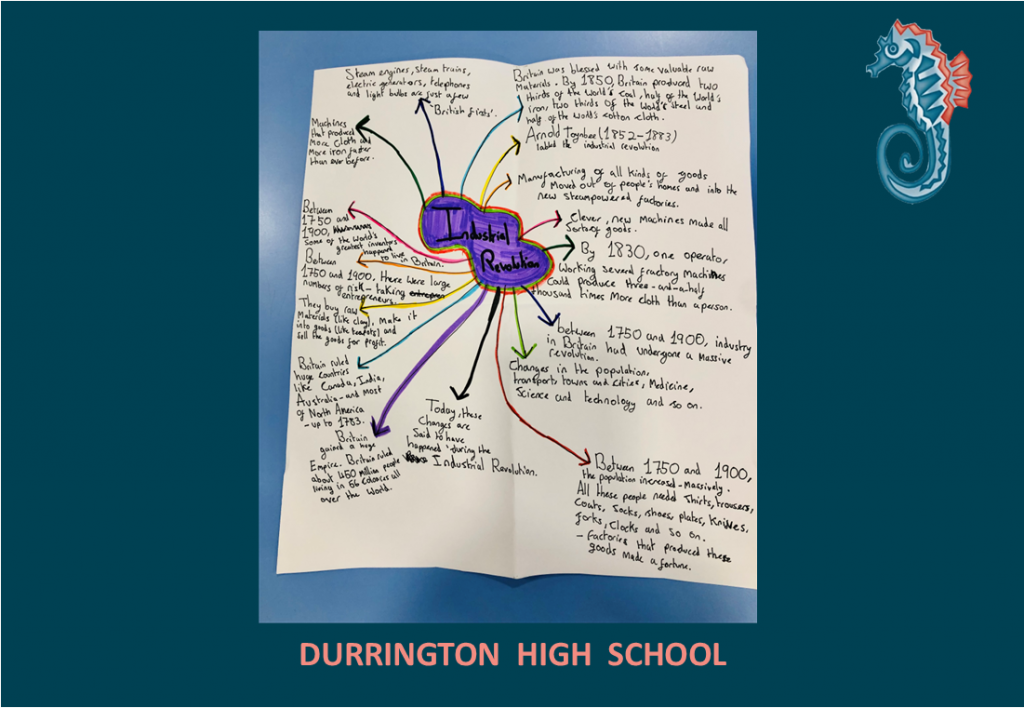 Steam engines, steam trains,
electric generators, telephones
and light bulbs are just a few
'British firsts'.
Britain was blessed with some valuable raw
Materials. By 1850, Britain produced two
thirds of the World's coal, half of the World's
iron, two thirds of the World's steel and
half of the world's cotton cloth.
Arnold Toynbee (1852-1883)
labled the industrial revolution
Machines
that produced
More cloth and
More iron faster
than ever before.
Manufacturing of all kinds of goods
Moved out of people's homes and into the
new steampowered factories.
Industrial
Revolution
Clever, new machines made all
Sorts of goods.
By 1830, one operator,
Working several fractory Machines
Could produce three-and-a-half
thousand times More cloth than a person.
Between
1750 and
1900,
Some of the world's
greatest inventors
happent
to live in Britain.
Between
1750 and 1900, there were large
numbers of risk-taking
entrepreneurs.
They buy raw
Materials (like clay), Make it
into goods (like teapots) and
sell the goods for profit.
between 1750 and 1900, industry
in Britain had undergone a Massive
revolution.
Changes in the population,
transport, towns and cities, Medicine,
Science and technology and so on.
Britain ruled
huge countries
like Canada, India,
Australia- and most
of North America
- up to 1783.
Britain
gained a huge
Empire. Britain ruled
about 450 million people
living in 56 colonies all
over the World.
Today, these
changes are
Said to have
happened 'during the
Industrial Revolution.
Between 1750 and 1900,
the population increased - Massively.
All these people needd Shirts, trousers,
Coats, Socks, shoes, plates, Knives,
forks, clocks and so on.
- factories that produced these
goods made a fortune.
DURRINGTON HIGH SCHOOL